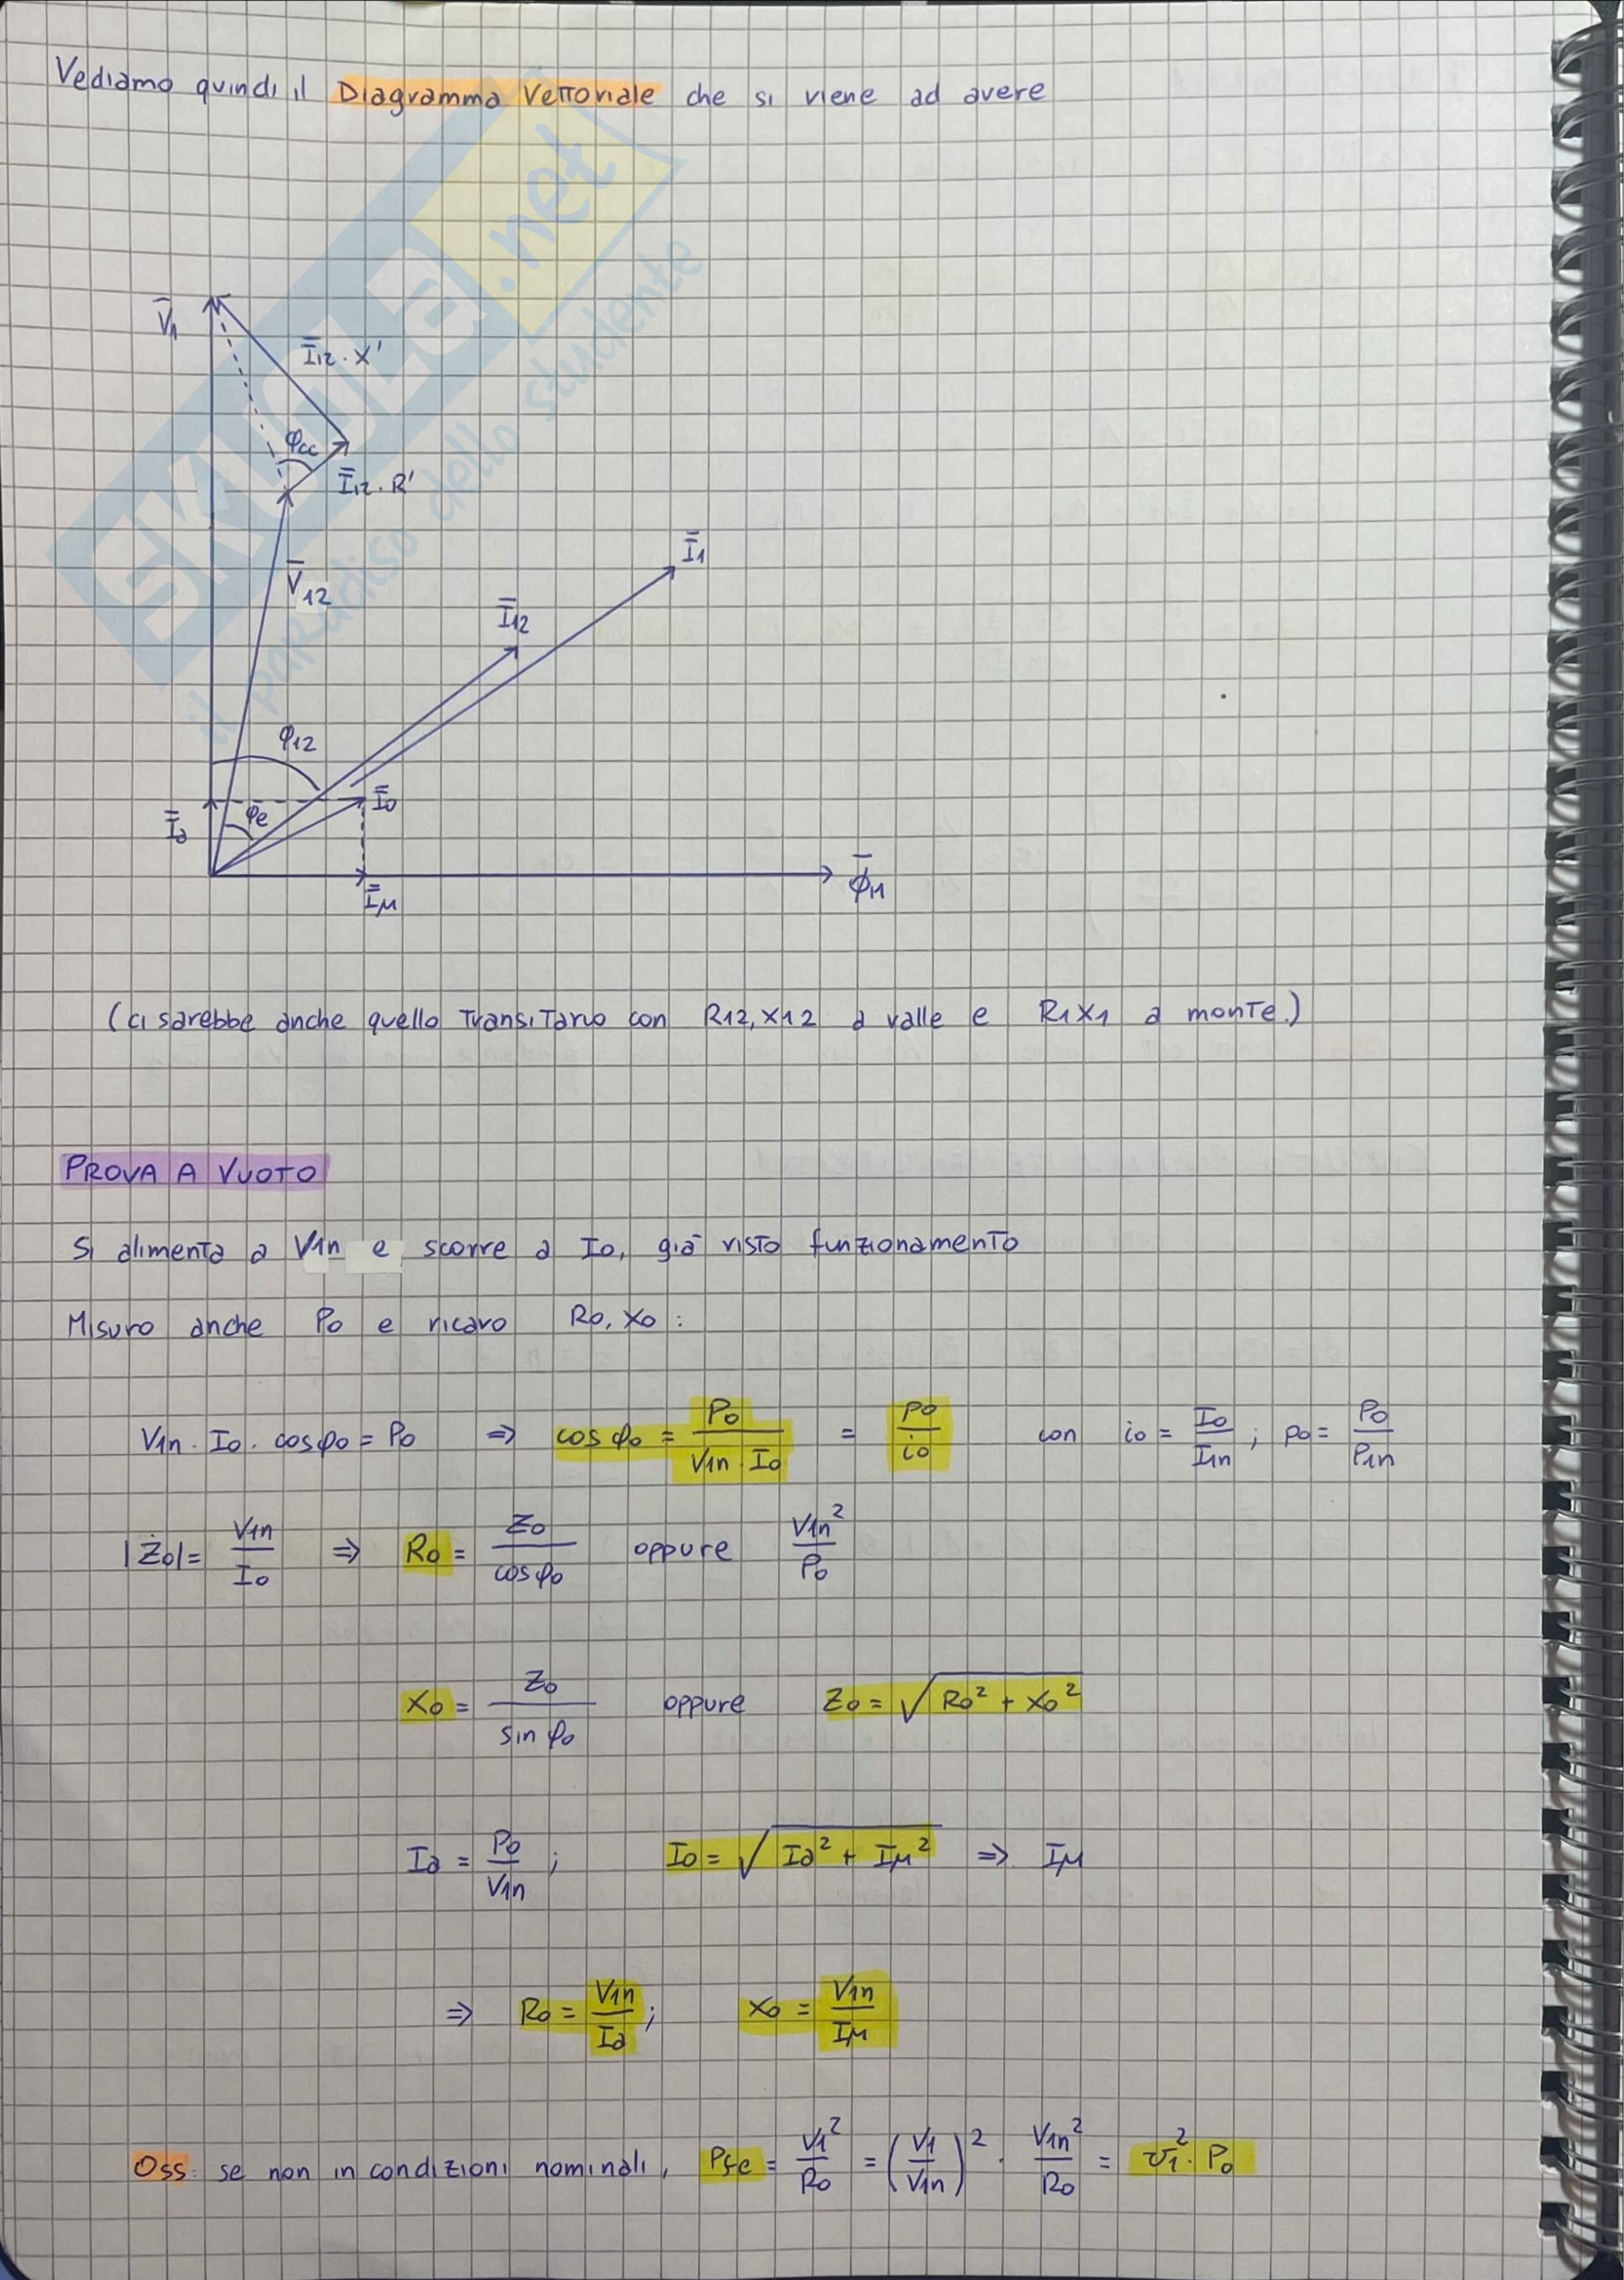 Vediamo quindi il Diagramma Vettoriale che si viene ad avere
SKUOLA.net
il paradiso dello studente
V̄1
Ī12 · X'
φcc
Ī12 · R'
V̄12
Ī1
Ī12
φ12
Ī0
φe
Īa
Īμ
ϕ̄M
(ci sarebbe anche quello transitario con R12, X12 a valle e R1 X1 a monte.)
PROVA A VUOTO
Si alimenta a V1n e scorre a I0, già visto funzionamento
Misuro anche P0 e ricavo R0, X0 :
V1n · I0 · cosφ0 = P0 ⇒ cos φ0 = P0 / V1n · I0 = p0 / i0 con i0 = I0 / I1n ; p0 = P0 / P1n
|Ż0| = V1n / I0 ⇒ R0 = Z0 / cosφ0 oppure V1n² / P0
X0 = Z0 / sin φ0 oppure Z0 = √(R0² + X0²)
Ia = P0 / V1n ; I0 = √(Ia² + Iμ²) ⇒ Iμ
⇒ R0 = V1n / Ia ; X0 = V1n / Iμ
Oss: se non in condizioni nominali, Pfe = V1² / R0 = (V1 / V1n)² · V1n² / R0 = v1² · P0